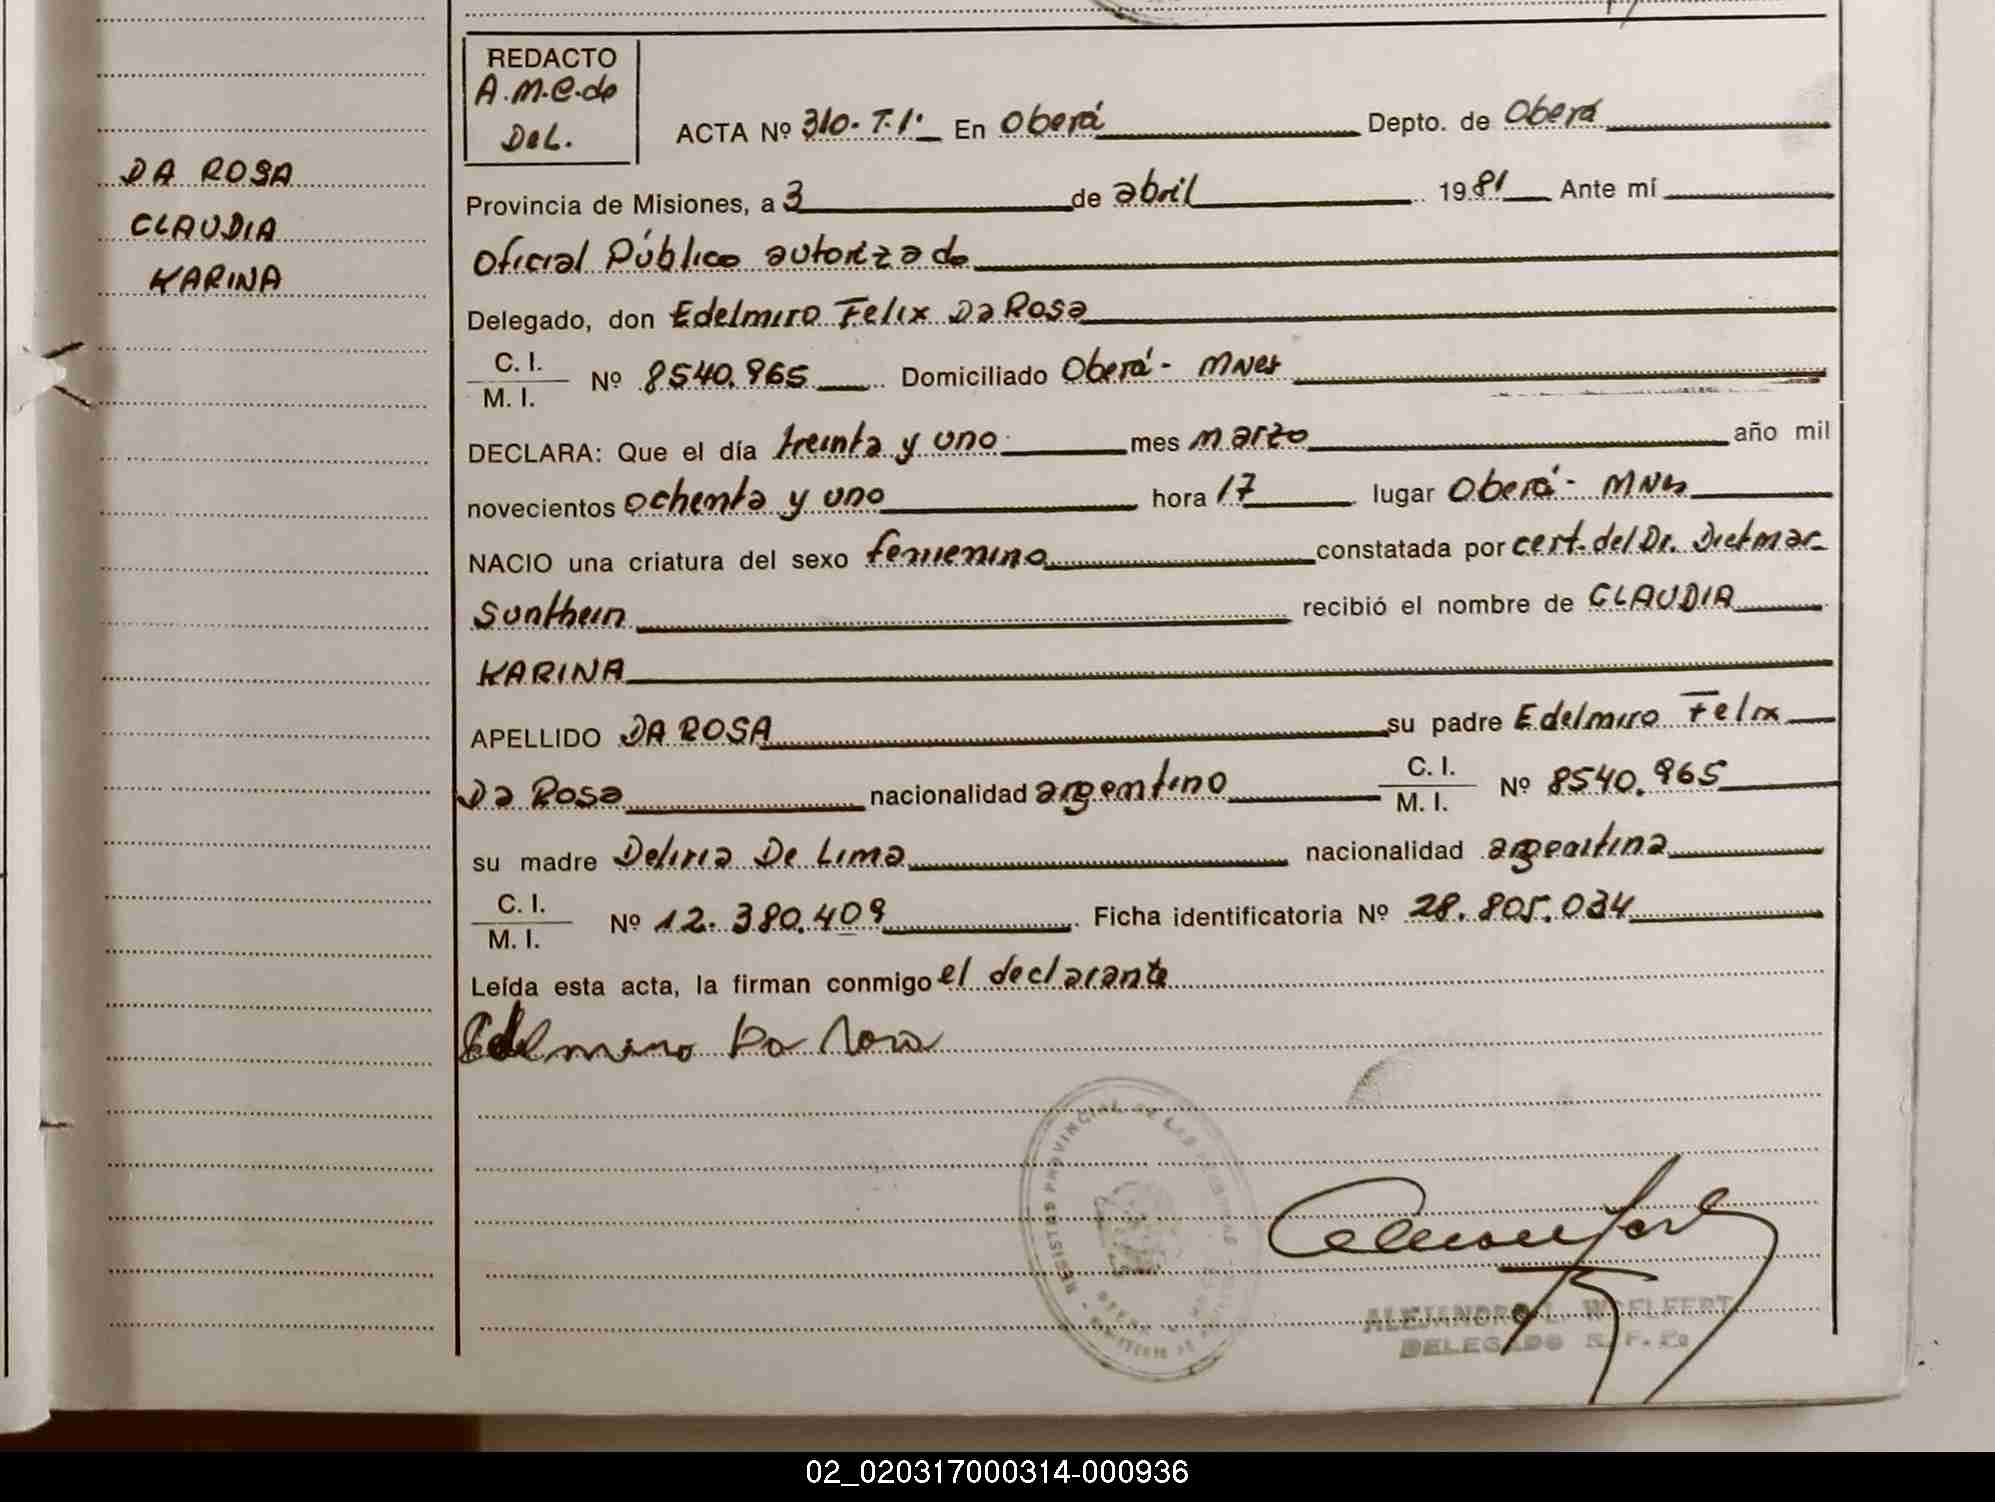 REDACTO
A.M.C.de
Del.
ACTA Nº 310. T.1. En Oberá Depto. de Oberá
DA ROSA
CLAUDIA
KARINA
Provincia de Misiones, a 3 de abril 1981 Ante mí
Oficial Público autorizado
Delegado, don Edelmiro Felix Da Rosa
C. I.
M. I. Nº 8540.965 Domiciliado Oberá - MNes
DECLARA: Que el día treinta y uno mes marzo año mil
novecientos ochenta y uno hora 17 lugar Oberá - MNes
NACIO una criatura del sexo femenino constatada por cert. del Dr. Dietmar
Sonthein recibió el nombre de CLAUDIA
KARINA
APELLIDO DA ROSA su padre Edelmiro Felix
Da Rosa nacionalidad argentino C. I.
M. I. Nº 8540.965
su madre Deliria De Lima nacionalidad argentina
C. I.
M. I. Nº 12.380.409 Ficha identificatoria Nº 28.805.034
Leída esta acta, la firman conmigo el declarante
Edelmiro Da Rosa
REGISTRO PROVINCIAL DE LAS PERSONAS
ALEJANDRO L. WOELFERT
DELEGADO R. F. P.
02_020317000314-000936